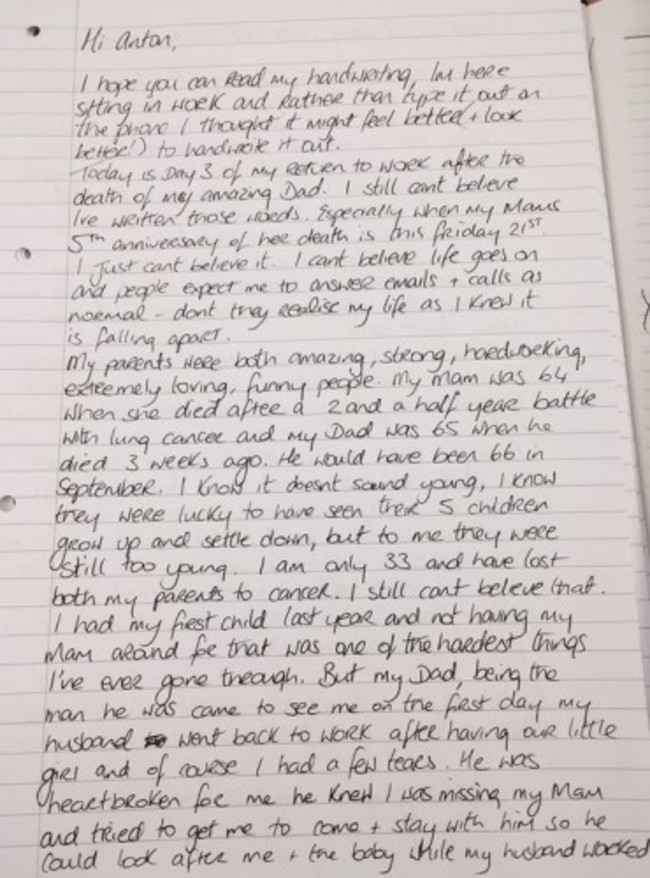 Hi Anton,
I hope you can read my handwriting, Im here
sitting in work and rather than type it out on
the phone I thought it might feel better (+ look
better!) to handwrite it out.
Today is Day 3 of my return to work after the
death of my amazing Dad. I still cant believe
I've written those words. Especially when my Mams
5th anniversary of her death is this friday 21st.
I just cant believe it. I cant believe life goes on
and people expect me to answer emails + calls as
normal - dont they realise my life as I knew it
is falling apart.
My parents were both amazing, strong, hardworking,
extremely loving, funny people. My Mam was 64
when she died after a 2 and a half year battle
with lung cancer and my Dad was 65 when he
died 3 weeks ago. He would have been 66 in
September. I know it doesnt sound young, I know
they were lucky to have seen their 5 children
grow up and settle down, but to me they were
still too young. I am only 33 and have lost
both my parents to cancer. I still cant believe that.
I had my first child last year and not having my
Mam around for that was one of the hardest things
I've ever gone through. But my Dad, being the
man he was came to see me on the first day my
husband went back to work after having our little
girl and of course I had a few tears. He was
heartbroken for me he knew I was missing my Mam
and tried to get me to come + stay with him so he
could look after me + the baby while my husband worked